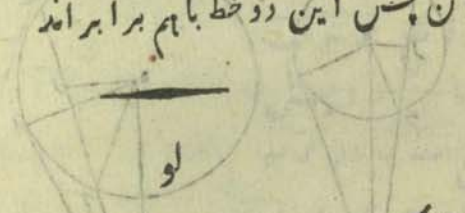 پس این دو خط باهم برابراند
لو